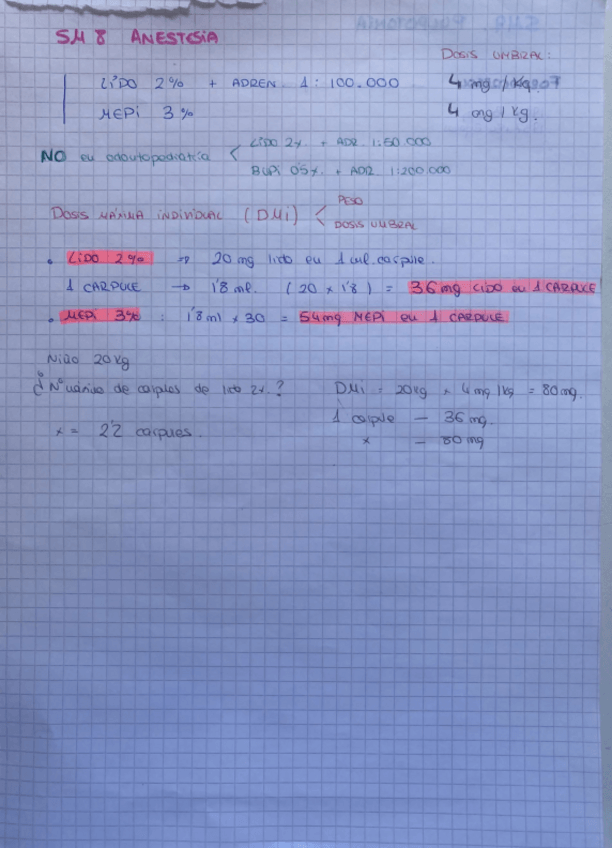 SM 8 ANESTESIA
DOSIS UMBRAL:
LIDO 2% + ADREN 1:100.000 4 mg/kg
MEPI 3% 4 mg/kg.
NO en odontopediatría < LIDO 2%. + ADR 1:50.000
BUPI 0'5%. + ADR. 1:200.000
DOSIS MÁXIMA INDIVIDUAL (DMi) < PESO
DOSIS UMBRAL
• LIDO 2% ⇒ 20 mg lido en 1 ml. carpule.
1 CARPULE → 1'8 ml. (20 x 1'8) = 36 mg LIDO en 1 CARPULE
• MEPI 3% : 1'8 ml x 30 = 54 mg MEPI en 1 CARPULE
Niño 20 kg
¿Nº máximo de carpules de lido 2%.? DMi = 20kg x 4 mg/kg = 80 mg.
1 carpule — 36 mg.
x = 2'2 carpules. x — 80 mg